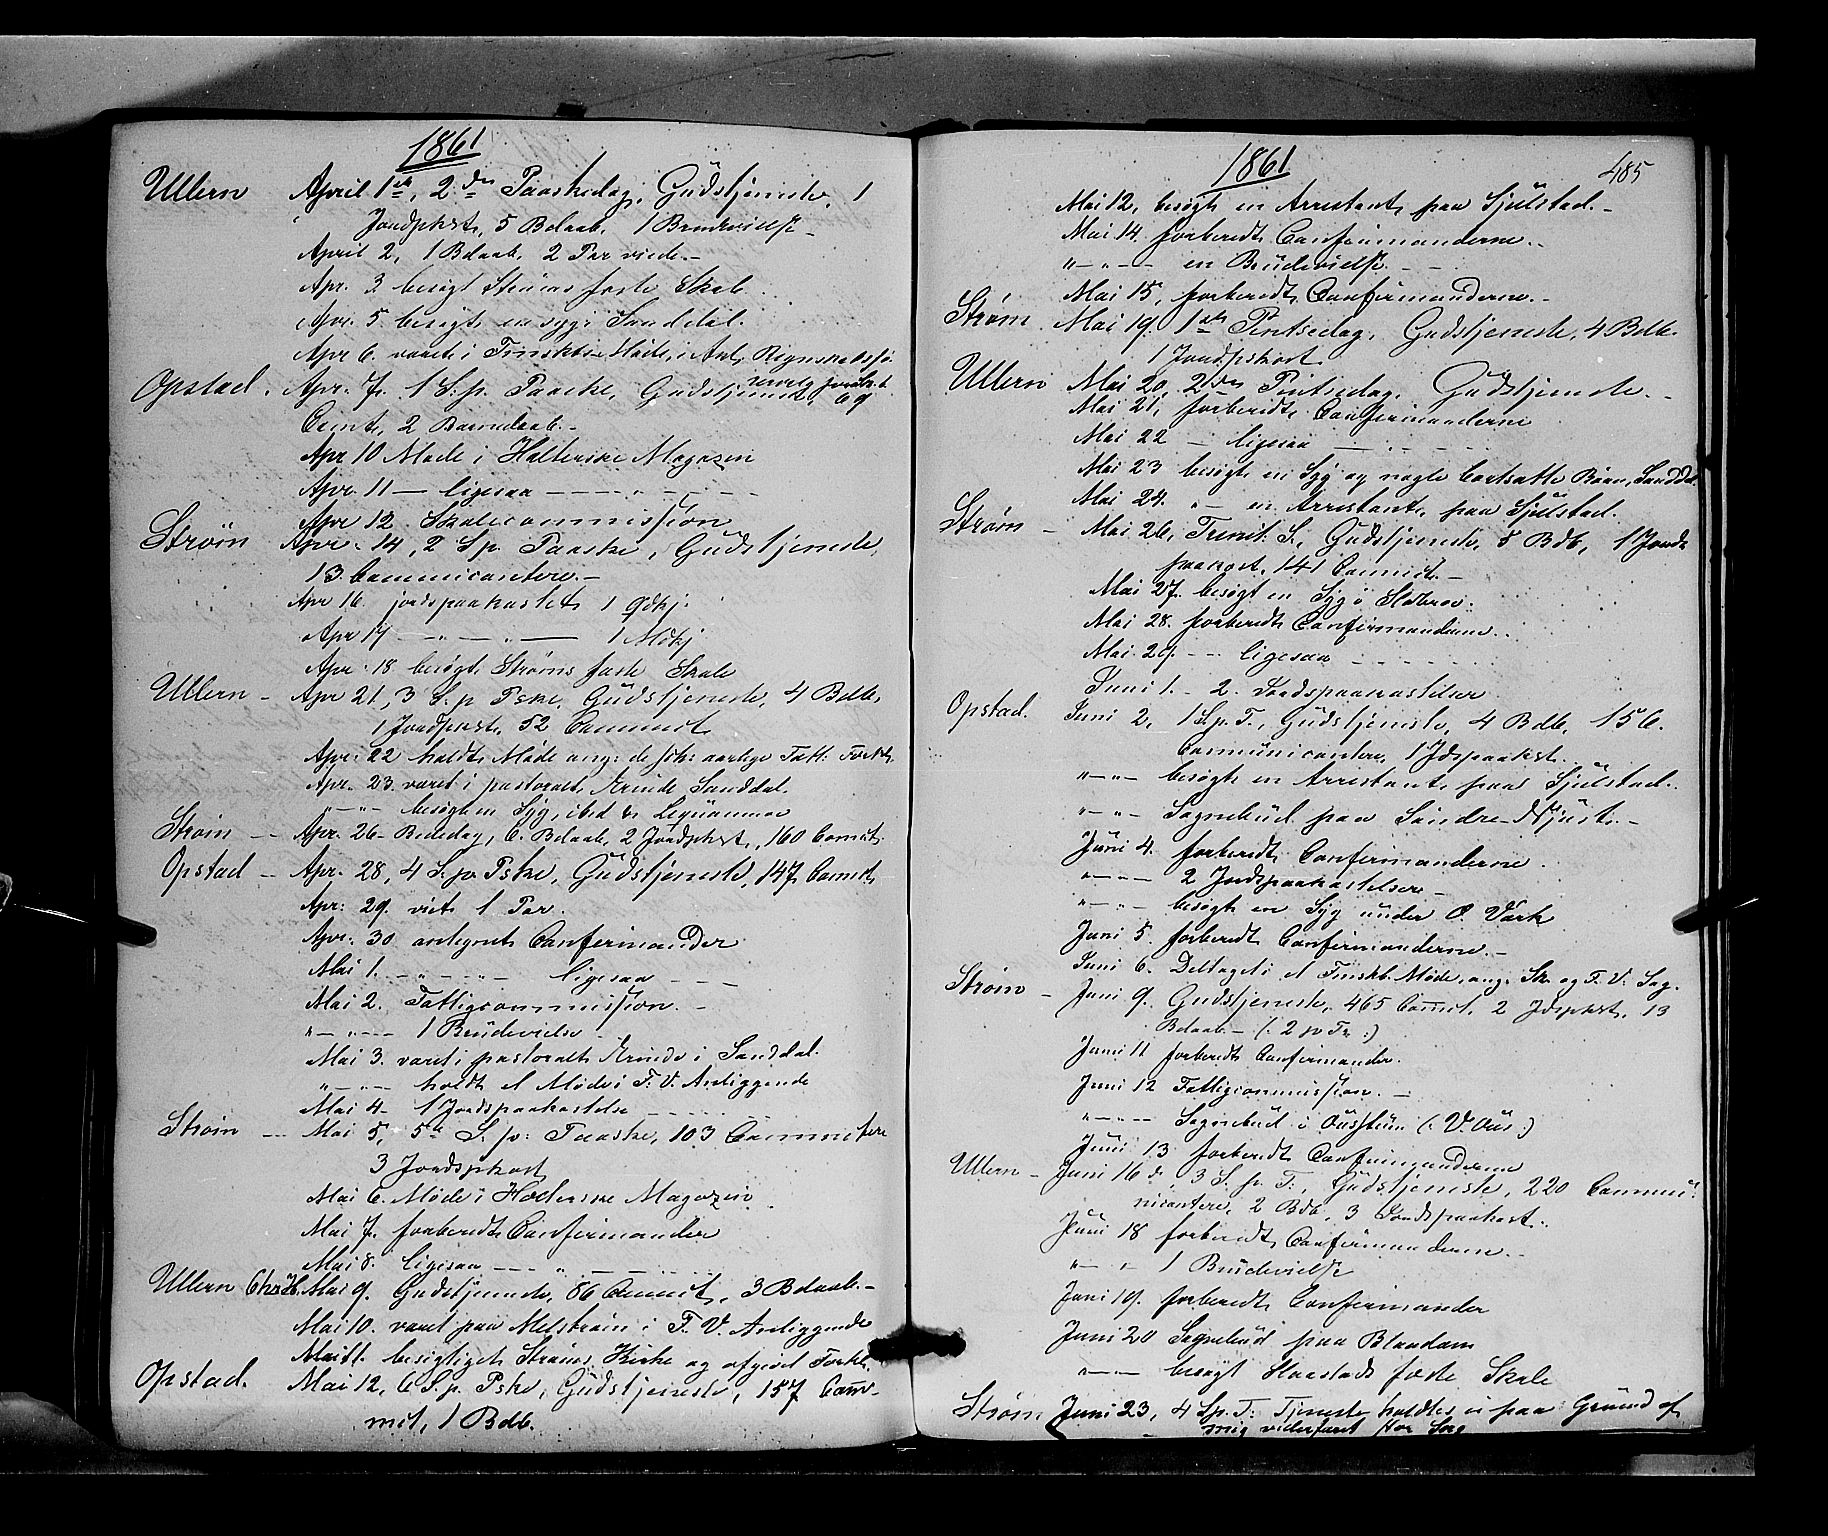 1861
Ullern April 1ste, 2den Paaskedag, Gudstjeneste, 1
Jordpkst, 5 Bdaab, 1 Brudevielse
April 2, 1 Bdaab, 2 Par viede.-
Apr. 3 besøgt Strøms faste Skole
Apr. 5. besøgt en syg i Sanddal.
Apr 6. været i Møde, i Anl.
Opstad. Apr. 7. 1 S. p. Paaske, Gudstjeneste, 69
Comt, 2 Barnedaab.-
Apr 10 Møde i Magazin
Apr. 11 — ligesaa — — — —
Apr 12. Skolecommission
Strøm Apr. 14, 2 S p. Paaske, Gudstjeneste,
13 Communicantere.-
Apr 16. jordspaakastet 1
Apr 17 — „ — „ — 1
Apr. 18 besøgt Strøms faste Skole
Ullern - Apr 21, 3 S. p Pske, Gudstjeneste, 4 Bdb,
1 Jordpkst, 52 Commct
Apr: 22 holdt Møde ang: de aarlige Fatt:
Apr. 23 været i pastoralt Ærinde Sanddal.
„—„— besøgt en Syg, ibid
Strøm -- Apr. 26 - Bededag, 6. Bdaab, 2 Jordpkst, 160 Comct.
Opstad - Apr. 28, 4 S. p Pske, Gudstjeneste, 147 Comct
Apr: 29. viet 1 Par.
Apr. 30 antegnet Confirmander
Mai 1. — „ — „ — ligesaa — — —
Mai 2. Fattigcommission. -
„—„— 1 Brudevielse
Mai 3. været i pastoralt Ærinde i Sanddal.
„—„— holdt et Møde i F. V. Anliggende
Mai 4 - 1 Jordspaakastelse
Strøm -- Mai 5, 5te S. p: Paaske, 103 Communctere
3 Jordspkast
Mai 6. Møde i Magazin
Mai 7. forberedt Confirmander
Mai 8. ligesaa — — „ — —
Ullern Mai 9. Gudstjeneste, 86 Commct, 3 Bdaab.-
Mai 10. været paa Melstrøm i F. V. Anliggende
Mai 11. besigtiget Strøms Kirke og afgivet
Opstad. Mai 12, 6 S. p. Pske, Gudstjeneste, 157 Com-
mct, 1 Bdb.
1861 485
Mai 12, besøgt en Arrestant paa Sjulstad.-
Mai 14. forberedt Confirmanderne.-
„—„— en Brudevielse.
Mai 15, forberedt Confirmanderne.-
Strøm. Mai 19. 1ste Pintsedag, Gudstjeneste, 4 Bdb.
1 Jordspkast
Ullern Mai 20, 2den Pintsedag, Gudstjeneste.-
Mai 21, forberedt Confirmanderne
Mai 22 — ligesaa — — — —
Mai 23 besøgt en Syg og nogle bortsatte Børn, Sanddal
Mai 24. „— en Arrestant, paa Sjulstad.
Strøm - Mai 26, Trinit. S., Gudstjeneste, 8 Bdb, 1 Jords
paakast, 141 Commct.-
Mai 27. besøgt en Syg i
Mai 28. forberedt Confirmanderne.
Mai 29. — — ligesaa — — — —
Juni 1. - 2. Jordspaakastelser
Opstad. Juni 2, 1 S. p. T., Gudstjeneste, 4 Bdb, 156.
Communicantere, 1 Jdspaakst.
„—„— besøgt en Arrestant paa Sjulstad.
„—„— Sognebud paa Søndre
Juni 4. forberedt Confirmanderne.
„—„— 2 Jordspaakastelser -
„—„— besøgt en Syg under O. Vark
Juni 5. forberedt Confirmanderne.-
Juni 6. Deltaget i et Møde, ang. og F. V. Sag.
Strøm - Juni 9. Gudstjeneste, 465 Comct, 2 Jdspkst, 13
Bdaab - (: 2 p Tr :)
Juni 11 forberedt Confirmander.
Juni 12 Fattigcommission. -
„—„— Sognebud i (: V. Ous :)
Juni 13 forberedt Confirmanderne
Ullern - Juni 16de, 3 S. p. T., Gudstjeneste, 220 Commu-
nicantere, 2 Bdb, 3 Jordspaakast.
Juni 18 forberedt Confirmanderne.-
„— „ 1 Brudevielse
Juni 19. forberedt Confirmander
Juni 20 Sognebud paa
„—„— besøgt faste Skole
Strøm Juni 23, 4 S p. T: Tjeneste holdtes ei paa Grund af
mig vederfaret stor Sorg